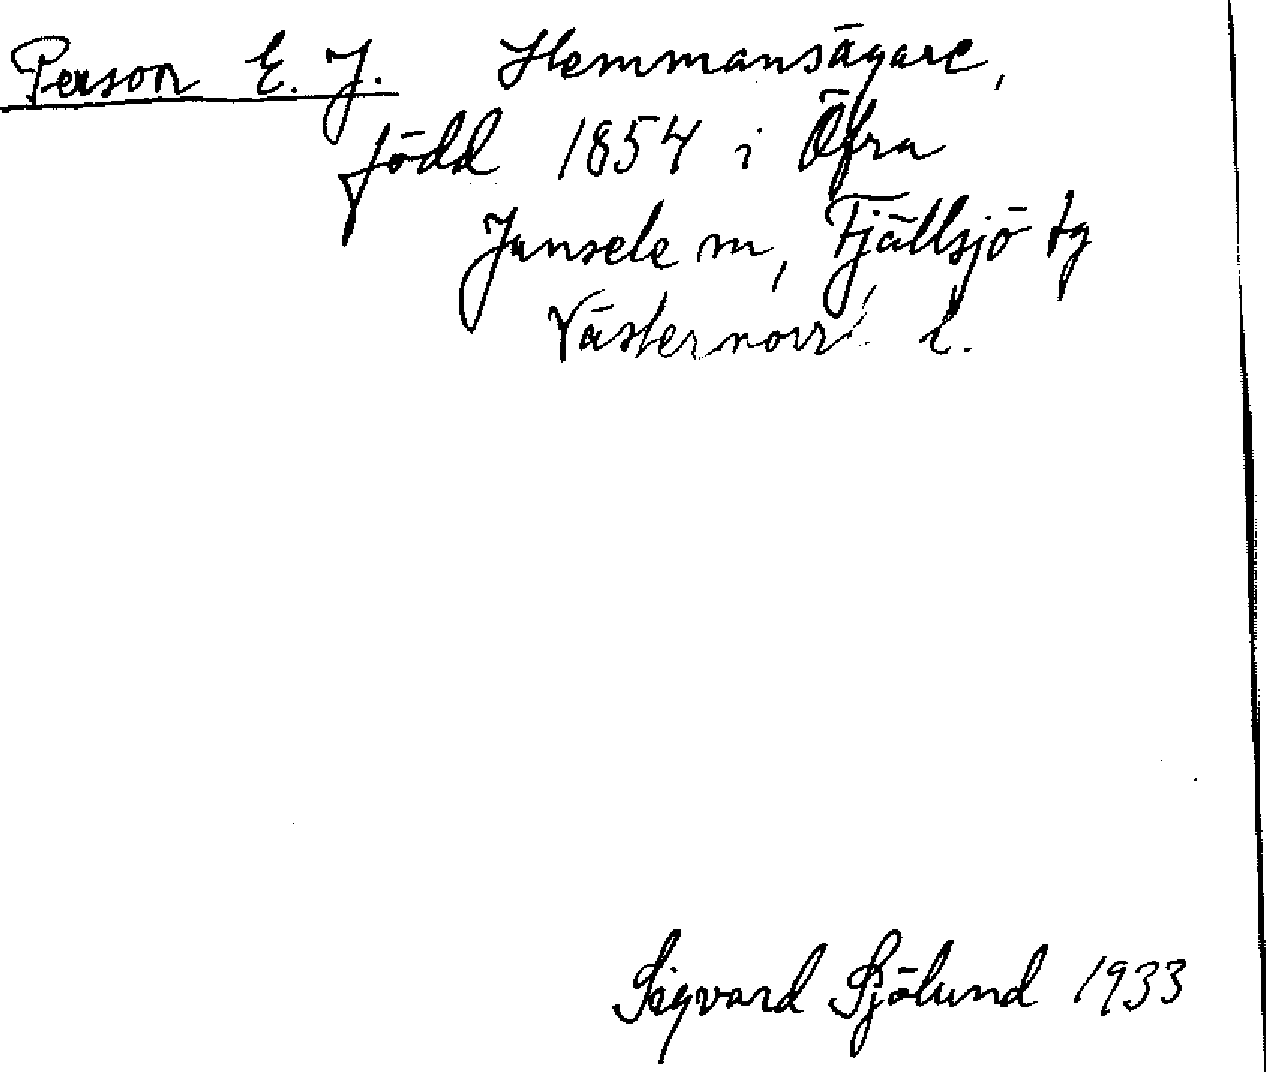 Person E. J. Hemmansägare,
född 1854 i Öfra
Junsele m, Fjällsjö tg
Västernorrl. l.
Sigvard Sjölund 1933